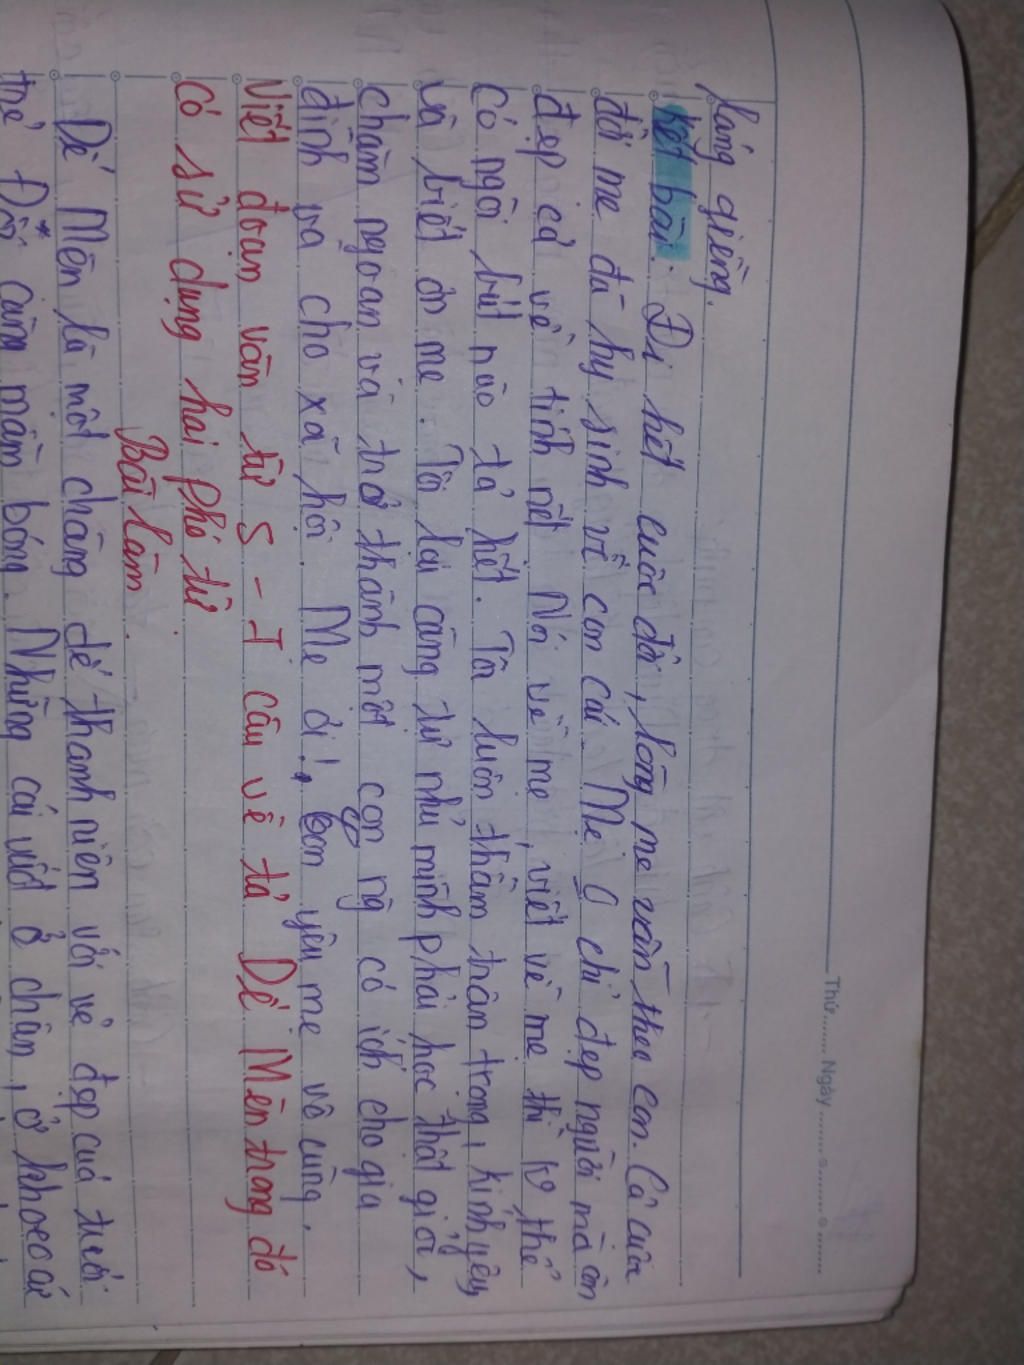 láng giềng.
Thứ....... Ngày.......
kết bài: Đi hết cuộc đời, lòng mẹ vẫn theo con. Cả cuộc
đời mẹ đã hy sinh vì con cái. Mẹ 0 chỉ đẹp người mà còn
đẹp cả về tính nết. Nói về mẹ, viết về mẹ thì ko thể
có ngòi bút nào tả hết. Tôi luôn thầm trân trọng, kính yêu
và biết ơn mẹ. Tôi lại càng tự nhủ mình phải học thật giỏi,
chăm ngoan và trở thành một con ng có ích cho gia
đình và cho xã hội. Mẹ ơi!, con yêu mẹ vô cùng.
Viết đoạn văn từ 5 - 7 câu về tả Dế Mèn trong đó
có sử dụng hai phó từ
Bài làm.
Dế Mèn là một chàng dế thanh niên với vẻ đẹp của tuổi
trẻ. Đôi càng mẫm bóng. Những cái vuốt ở chân, ở khoeo cứ